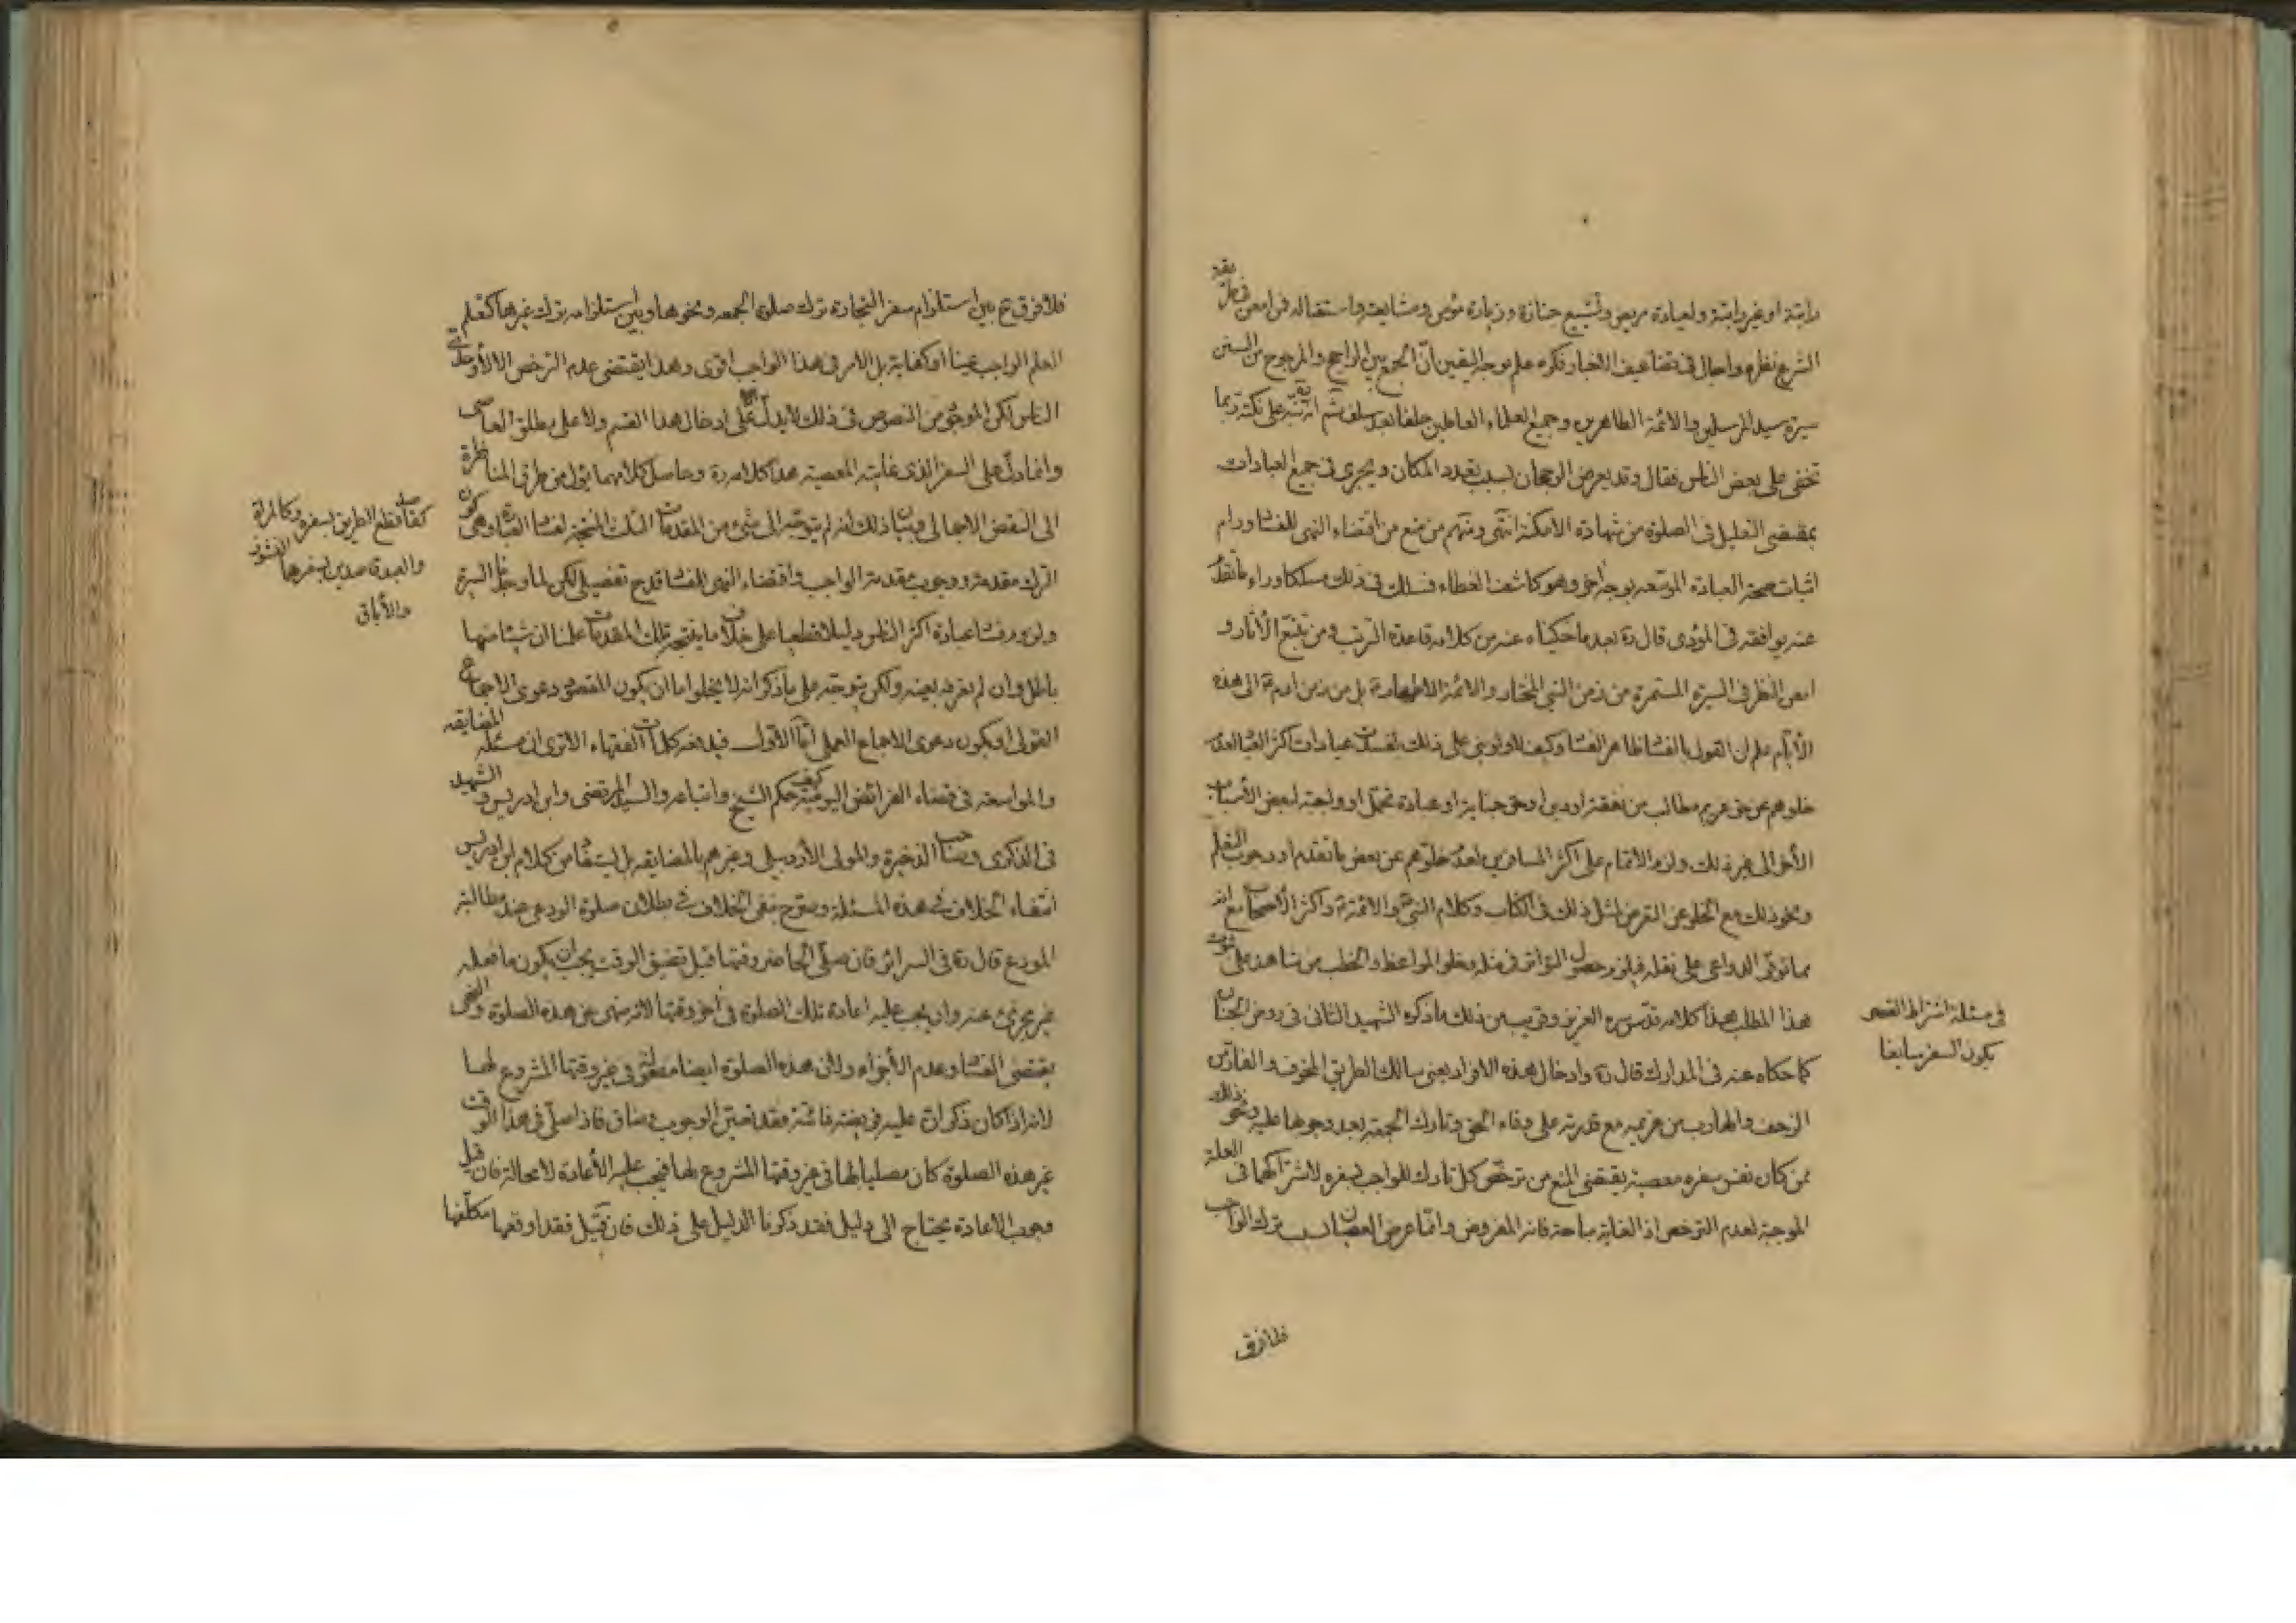 راتبة او غير راتبة ولعيادة مريض وتشييع جنازة وزيارة مؤمن ومشايعته واستقباله فمن امعن في طريقة
الشرع نظره واجال في تضاعيف الاخبار فكره علم بوجه اليقين ان الجمع بين الراجح والمرجوح من السنن
سيرة سيد المرسلين والائمة الطاهرين وجميع العلماء العاملين خلفا بعد سلف ثم انه تنبه على نكتة ربما
تخفى على بعض الناس فقال وقد يعرض الرجحان بسبب تعدد المكان ويجرى في جميع العبادات
بمقتضى التعليل في الصلوة من شهادة الامكنة انتهى ومنهم من منع من اقتضاء النهى للفساد ورام
اثبات صحة العبادة الموسعة بوجه اخر وهو كاشف الغطاء فسلك في ذلك مسلكا وراء ما تقدم
عنه يوافقه في المؤدى قال ره بعد ما حكيناه عنه من كلامه قاعدة الترتب ومن تتبع الاثار و
امعن النظر في السيرة المستمرة من زمن النبي المختار والائمة الاطهار بل من زمن ادم الى هذه
الأيام علم ان القول بالفساد ظاهر الفساد وكيف لا ولو بنى على ذلك لفسدت عبادات اكثر العباد لعدم
خلوهم عن حق غريم مطالب من نفقة او دين او حق جناية او عبادة تحمل او واجبة لبعض الأسباب
الأخر الى غير ذلك ولزم الاتمام على اكثر المسافرين لعدم خلوهم عن بعض ما تقدم او وجوب التعلم
ونحو ذلك مع الخلو عن التعرض لمثل ذلك في الكتاب وكلام النبي والائمة واكثر الأصحاب مع انه
مما توفر الدواعي على نقله فيلزم حصول التواتر في مثله وخلو المواعظ والخطب من شاهد على ثبوت
هذا المطلب هذا كلامه قدس سره العزيز وقريب من ذلك ما ذكره الشهيد الثاني في روض الجنان
كما حكاه عنه في المدارك قال ره وادخال هذه الافراد يعنى سالك الطريق المخوف والفار من
الزحف والهارب من غريمه مع قدرته على وفاء الحق وتارك الجمعة بعد وجوبها عليه ونحو ذلك
ممن كان نفس سفره معصية يقتضى المنع من ترخص كل تارك للواجب بسفره لاشتراكهما في العلة
الموجبة لعدم الترخص اذ الغاية مباحة فانه المفروض وانما عرض العصيان بسبب ترك الواجب
في مسئلة اشتراط القصر
بكون السفر سايغا
فلا فرق
فلا فرق ح بين استلزام سفر التجارة ترك صلوة الجمعه ونحوها وبين استلزامه ترك غيرها كتعلم
العلم الواجب عينا او كفاية بل الامر في هذا الواجب اقوى وهذا يقتضى عدم الترخص الا لأوحدى
الناس لكن الموجود من النصوص في ذلك لا يدل على ادخال هذا القسم ولا على مطلق العاصى
وانما دل على السفر الذى غايته المعصية هذا كلامه ره وحاصل كلامهما يؤل من طرق المناظرة
الى النقض الاجمالى وبيان ذلك انه لم يتوجه الى شئ من المقدمات الثلث المنتجة لفساد العبادة وهى كون
الترك مقدمة ووجوب مقدمة الواجب واقتضاء النهى للفساد قدح تفصيلى لكن لما وجدنا السيرة
ولزوم فساد عبادة اكثر الناس دليلا قطعيا على خلاف ما ينتجه تلك المقدمات علمنا ان شيئا منها
باطل وان لم نعرفه بعينه ولكن يتوجه على ما ذكر انه لا يخلو اما ان يكون المقصود دعوى الاجماع
القولى او يكون دعوى الاجماع العملى اما الأول فيدفعه كلمات الفقهاء الا ترى ان مسئلة المضايقه
والمواسعة في قضاء الفرائض اليومية كيف حكم الشيخ واتباعه والسيد المرتضى وابن ادريس والشهيد
في الذكرى وصاحب الذخيرة والمولى الأردبيلى وغيرهم بالمضايقه بل يستفاد من كلام ابن ادريس
انتفاء الخلاف في هذه المسئلة وصرح بنفى الخلاف في بطلان صلوة الودعى عند مطالبة
المودع قال ره في السرائر فان صلى الحاضر وقتها قبل تضيق الوقت يجب ان يكون ما فعله
غير مجزئ عنه وان يجب عليه اعادة تلك الصلوة في اخر وقتها لانه منهى عن هذه الصلوة والنهى
يقتضى الفساد وعدم الأجزاء ولان هذه الصلوة ايضا مفعولة في غير وقتها المشروع لها
لانه اذا كان ذكر ان عليه فريضة فائتة فقد تعين الوجوب وضاق فاذا صلى في هذا الوقت
غير هذه الصلوة كان مصليا لها في غير وقتها المشروع لها فيجب عليه الأعادة لا محالة فان قيل
وجوب الاعادة يحتاج الى دليل فقد ذكرنا الدليل على ذلك فان قيل فقد اوقعها مكلفها
كقاصد قطع الطريق بسفره وكالمرأة
والعبد قاصدين بسفرهما النشوز
والأباق